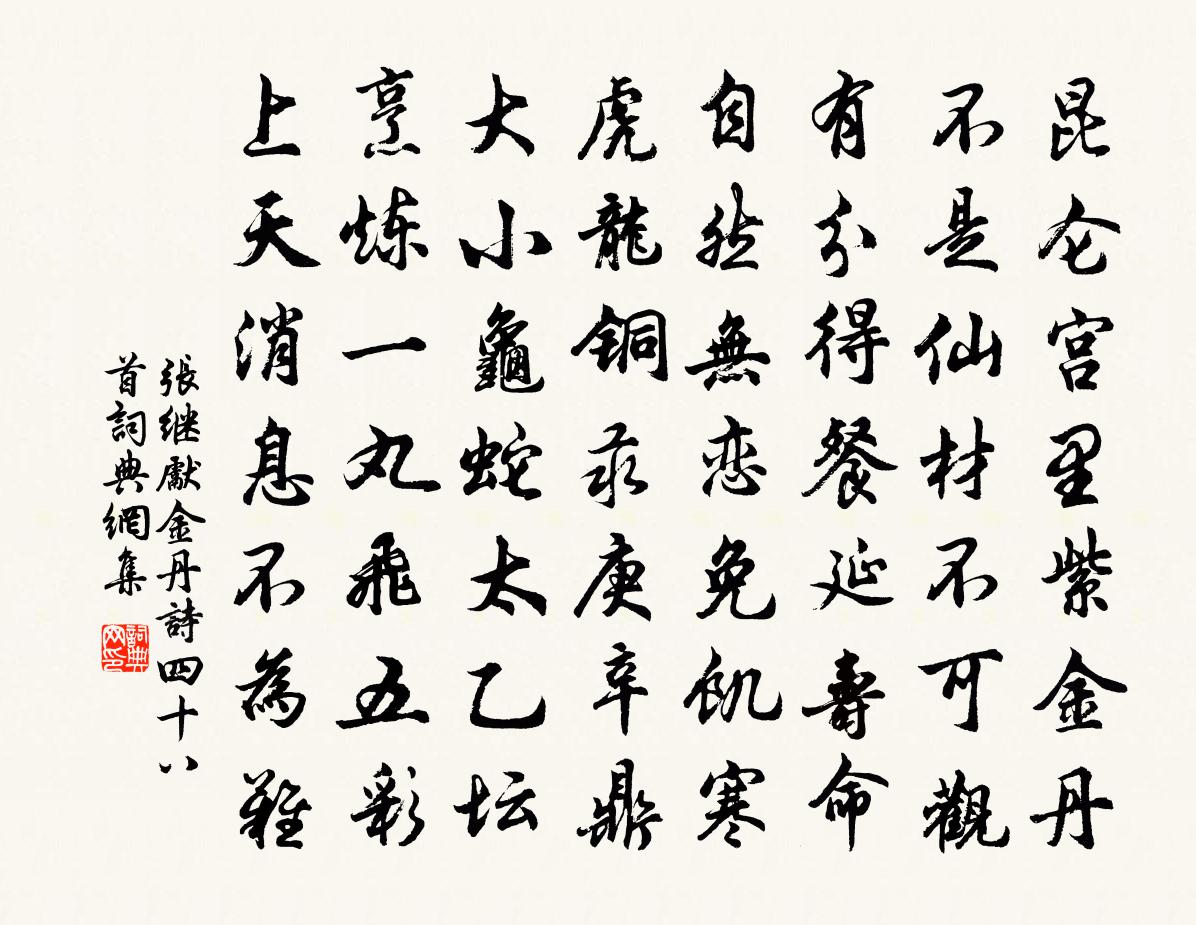 昆仑宫里紫金丹
不是仙材不可觀
有分得餐延壽命
自然無恋免饥寒
虎龍铜汞庚辛鼎
大小龜蛇太乙坛
烹炼一丸飛五彩
上天消息不為難
張继獻金丹詩四十八
首詞典網集
詞典网印